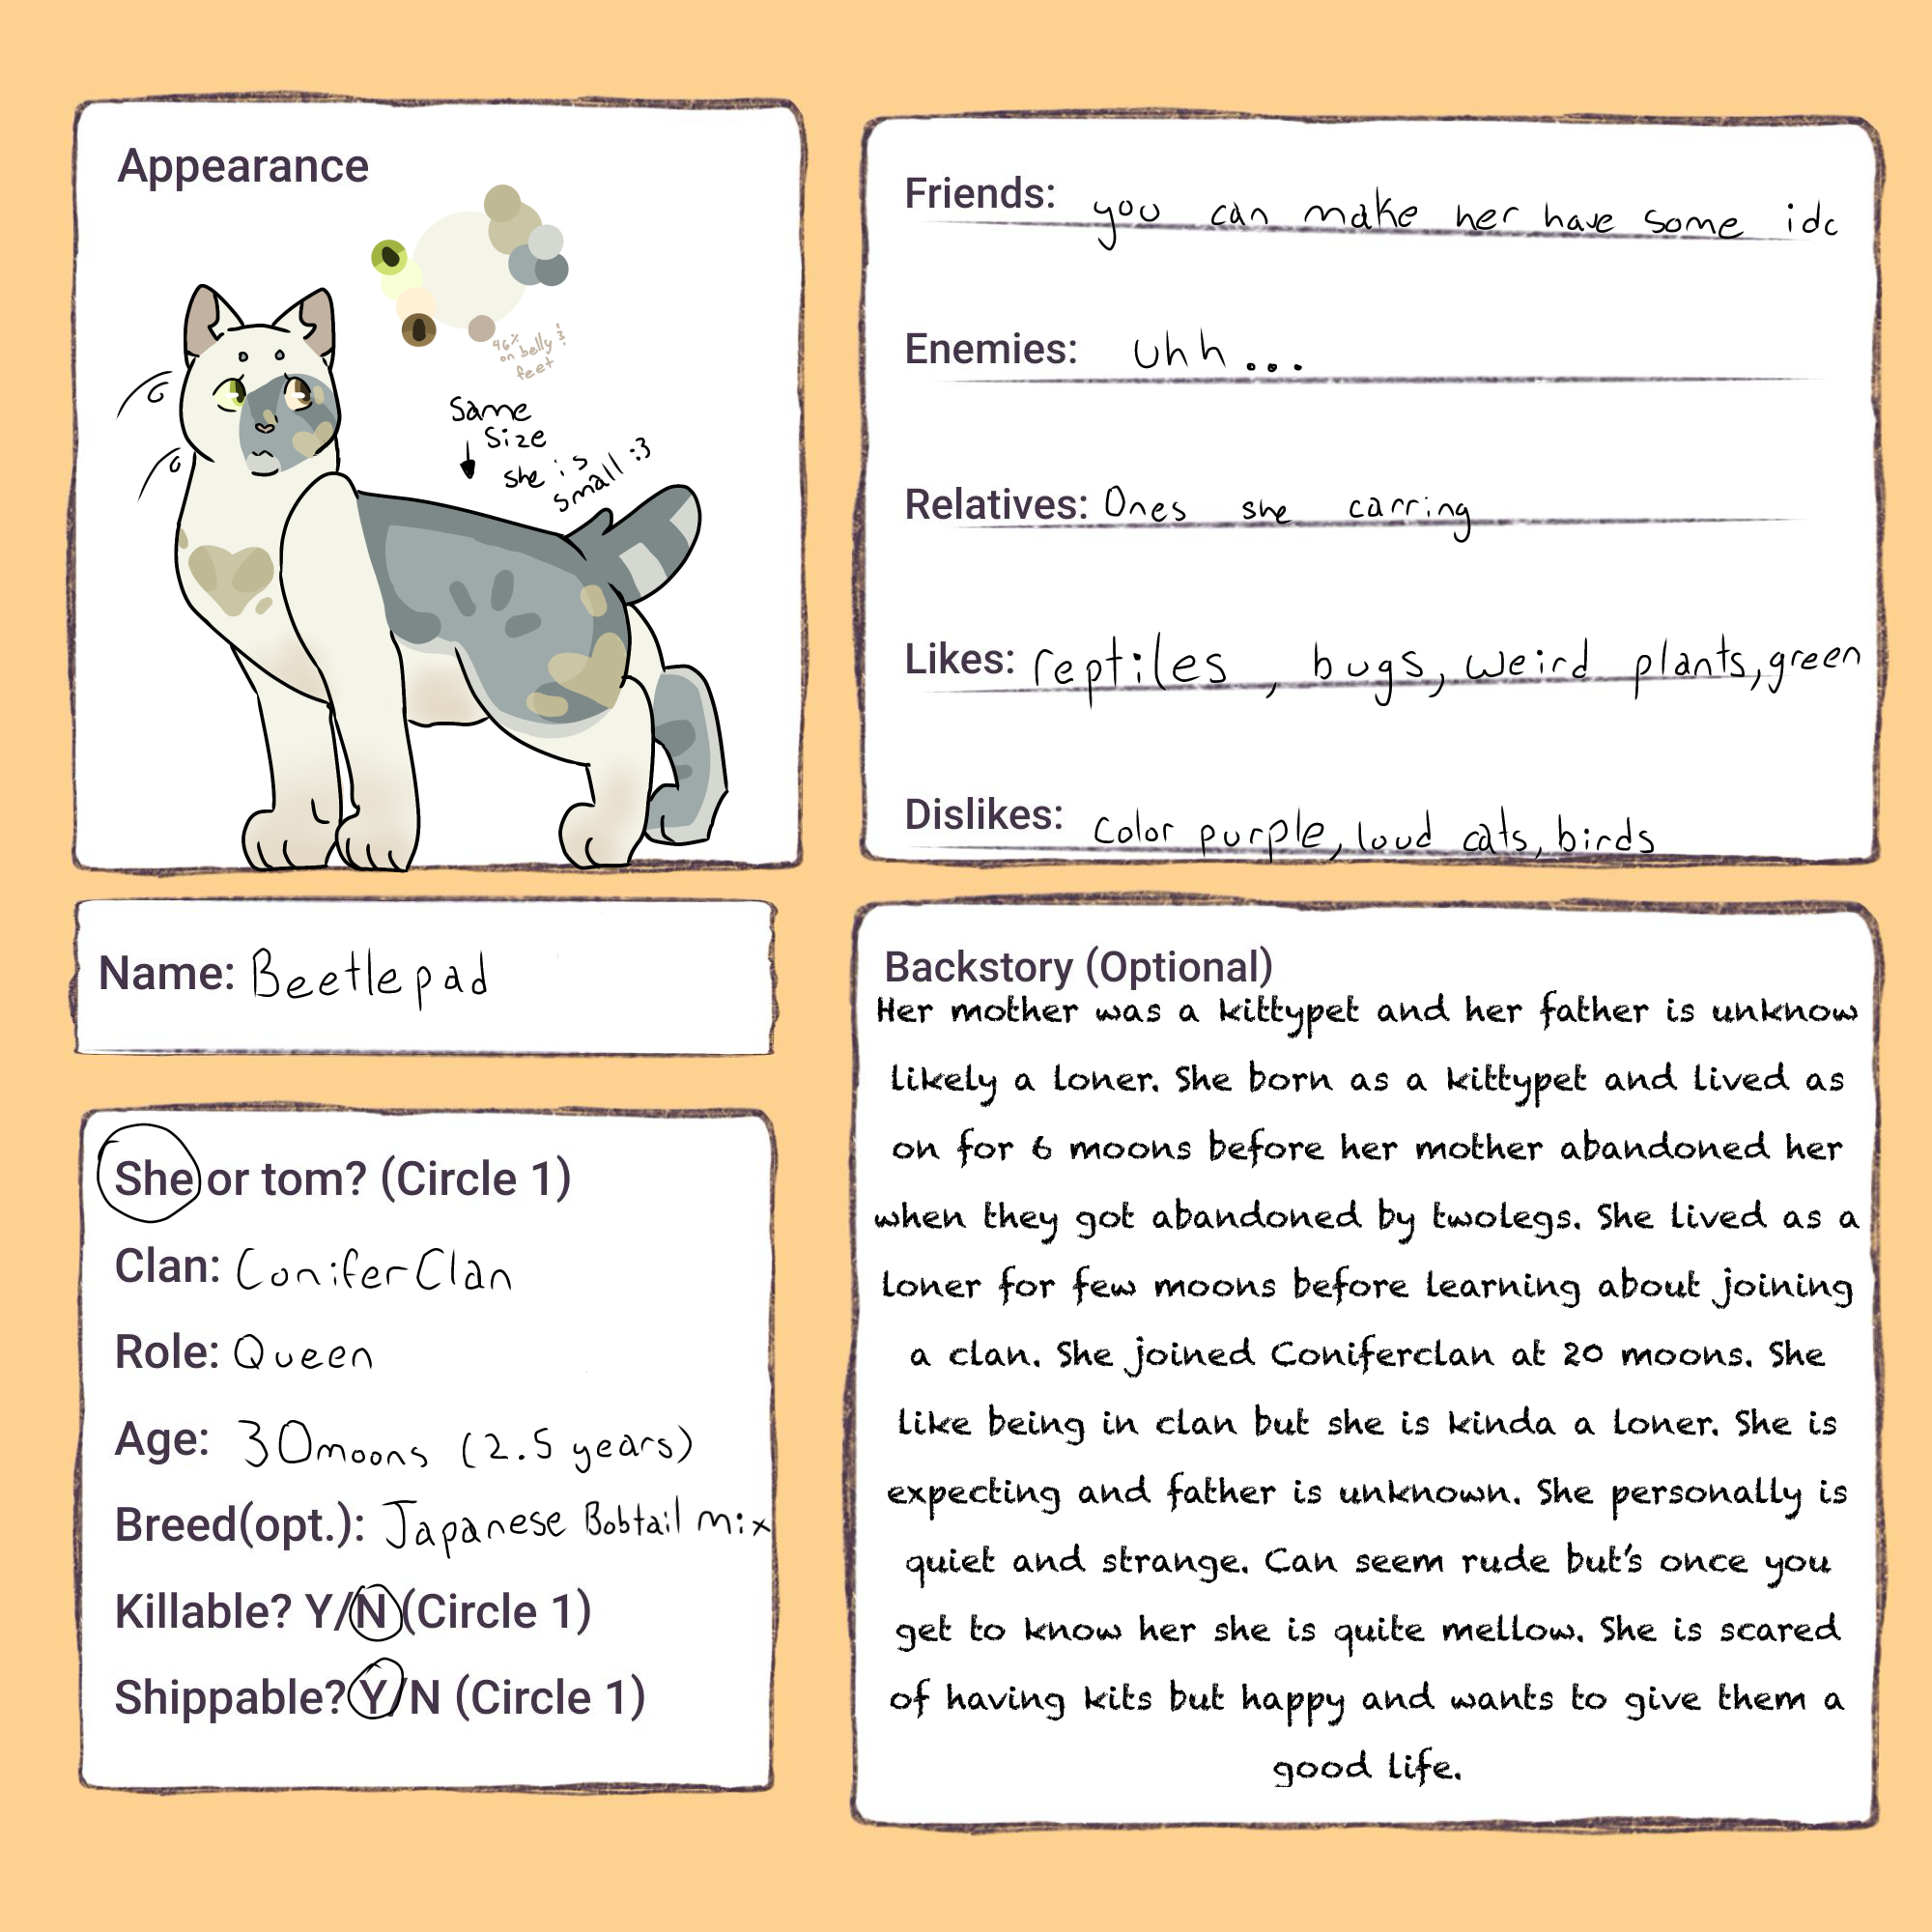 Appearance
46%
on belly &
feet
Same
Size
she is
small :3
Friends: you can make her have some idc
Enemies: uhh...
Relatives: Ones she carring
Likes: reptiles, bugs, weird plants, green
Dislikes: color purple, loud cats, birds
Name: Beetlepad
She or tom? (Circle 1)
Clan: ConiferClan
Role: Queen
Age: 30 moons (2.5 years)
Breed(opt.): Japanese Bobtail mix
Killable? Y/N (Circle 1)
Shippable? Y/N (Circle 1)
Backstory (Optional)
Her mother was a kittypet and her father is unknow
likely a loner. She born as a kittypet and lived as
on for 6 moons before her mother abandoned her
when they got abandoned by twolegs. She lived as a
loner for few moons before learning about joining
a clan. She joined Coniferclan at 20 moons. She
like being in clan but she is kinda a loner. She is
expecting and father is unknown. She personally is
quiet and strange. Can seem rude but's once you
get to know her she is quite mellow. She is scared
of having kits but happy and wants to give them a
good life.